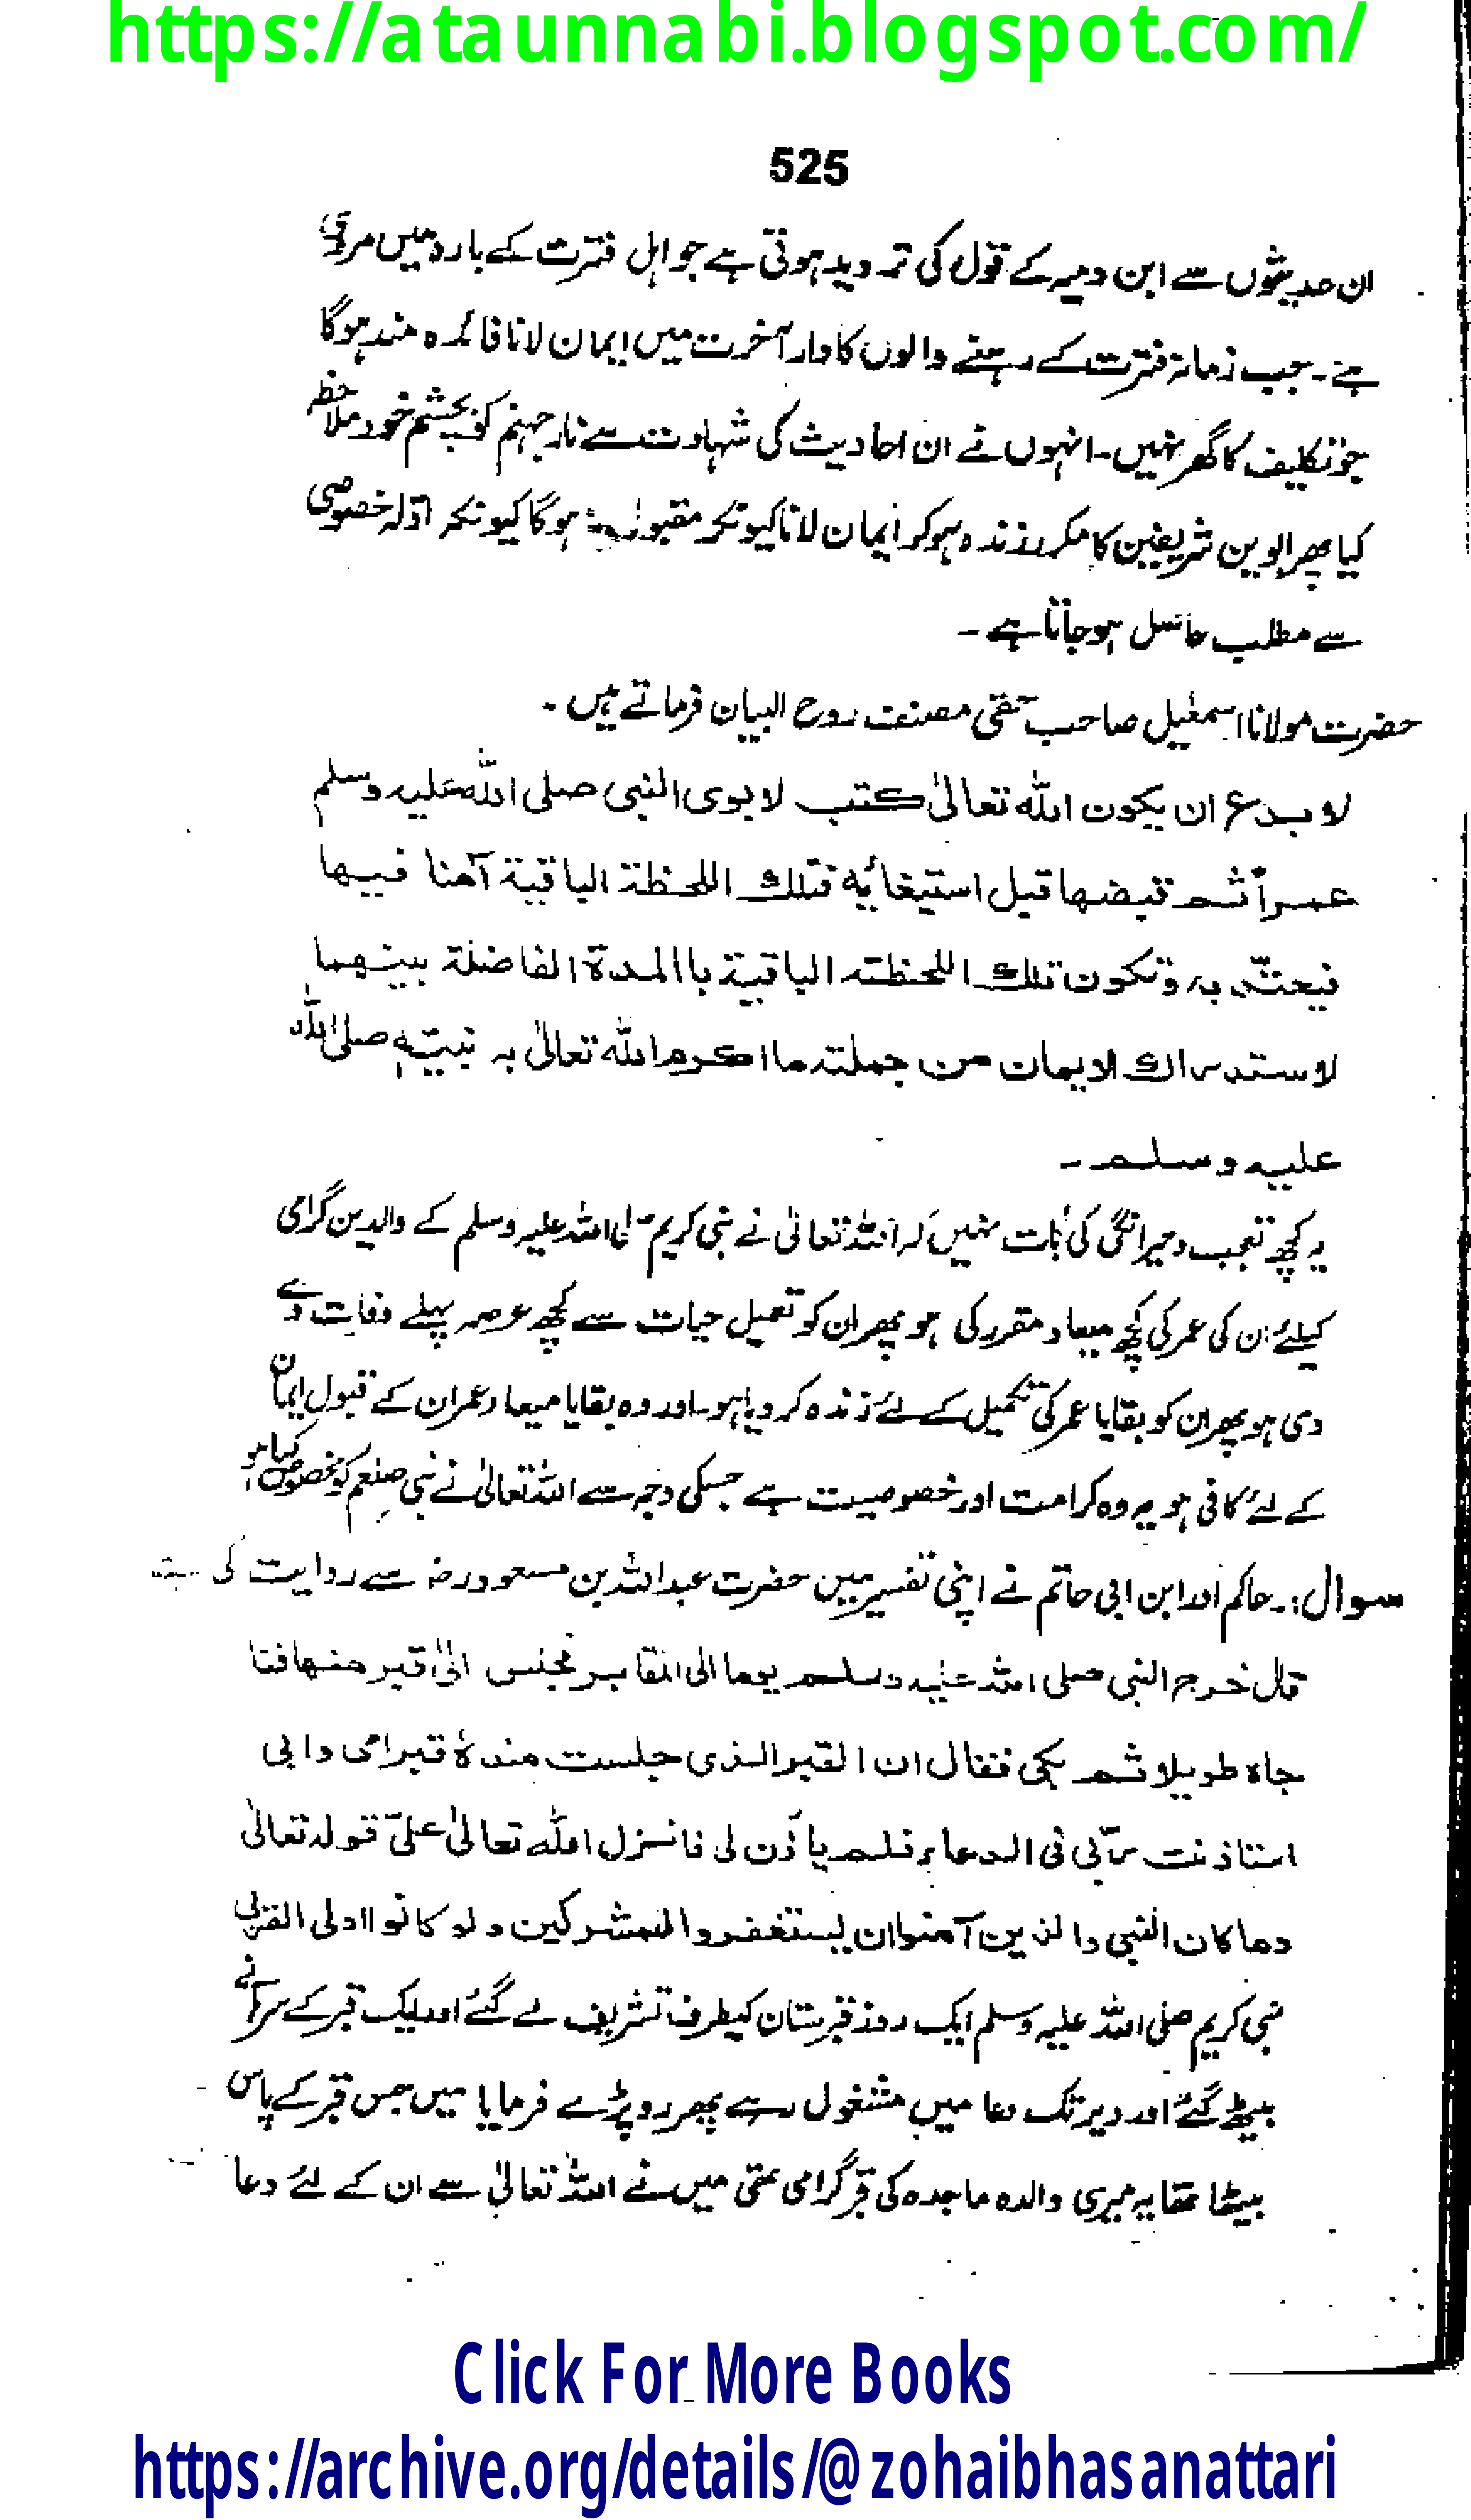 https://ataunnabi.blogspot.com/
525
ان حدیثوں سے ابن دحیہ کے قول کی تردید ہوتی ہے جو اہل فترت کے بارہ میں مروی
ہے۔ جب زمانۂ فترت کے رہنے والوں کا دار آخرت میں ایمان لانا فائدہ مند ہوگا
جو تکلیف کا گھر نہیں۔ انہوں نے ان احادیث کی شہادت سے نار جہنم کو بچشم خود ملاحظہ
کیا پھر ابوین شریفین کا مکرر زندہ ہو کر ایمان لانا کیونکر مقبول نہ ہوگا کیونکہ ادلہ خصوصی
سے مطلب حاصل ہو جاتا ہے ۔
حضرت مولانا اسمٰعیل صاحب حقی مصنف روح البیان فرماتے ہیں ۔
لا بدع ان یکون اللہ تعالیٰ کتب لابوی النبی صلی اللہ علیہ وسلم
عمراً ثم قبضہا قبل استیفائہ فتلک اللحظۃ الباقیۃ آمنا فیہا
فیعتدّ بہ وتکون تلک اللحظتہ الباقیۃ باالمدۃ الفاضلۃ بینہما
لاستدراک الایمان من جملتہ ما اکرم اللہ تعالیٰ بہ نبیّہ صلی اللہ
علیہ وسلم ۔
یہ کچھ تعجب و حیرانگی کی بات نہیں کہ اللہ تعالیٰ نے نبی کریم صلی اللہ علیہ وسلم کے والدین گرامی
کیلئے ان کی عمر کی کچھ میعاد مقرر کی ہو پھر ان کو تعمیل حیات سے کچھ عرصہ پہلے وفات دے
دی ہو پھر ان کو بقایا عمر کی تکمیل کے لئے زندہ کر دیا ہو۔ اور وہ بقایا میعاد عمر ان کے قبول ایمان
کے لئے کافی ہو یہ وہ کرامت اور خصوصیت ہے جسکی وجہ سے اللہ تعالیٰ نے نبی صلعم کو مخصوص کیا ہو
سوال:۔ حاکم اور ابن ابی حاتم نے اپنی تفسیر میں حضرت عبداللہ بن مسعود رضہ سے روایت کی ہے
قال خرج النبی صلی اللہ علیہ وسلم یوما الی المقابر فجلس الیٰ قبر منہا فنا
جاہ طویلا ثم بکی فقال ان القبر الذی جلست عندہٗ قبر امی وانی
استاذنت ربّی فی الدعاء فلم یأذن لی فانزل اللہ تعالیٰ علیّ قولہ تعالیٰ
وما کان للنبی والذین آمنوا ان یستغفروا للمشرکین ولو کانوا اولی القربیٰ
نبی کریم صلی اللہ علیہ وسلم ایک روز قبرستان کیطرف تشریف لے گئے اور ایک قبر کے سرہانے
بیٹھ گئے اور دیر تک دعا میں مشغول رہے پھر رو پڑے فرمایا میں جس قبر کے پاس
بیٹھا تھا یہ میری والدہ ماجدہ کی قبر گرامی تھی میں نے اللہ تعالیٰ سے ان کے لئے دعا
Click For More Books
https://archive.org/details/@zohaibhasanattari